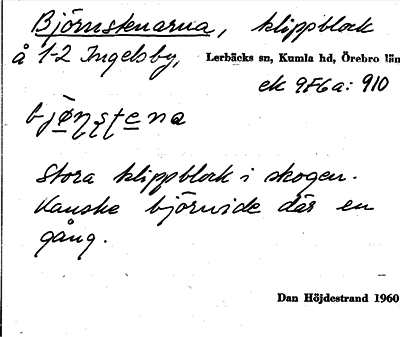 Björnstenarna, klippblock
å 1-2 Ingelsby, Lerbäcks sn, Kumla hd, Örebro län
ek 9F6a: 910
bjø̱ṇṣṭe̱na
Stora klippblock i skogen.
Kanske björnide där en
gång.
Dan Höjdestrand 1960